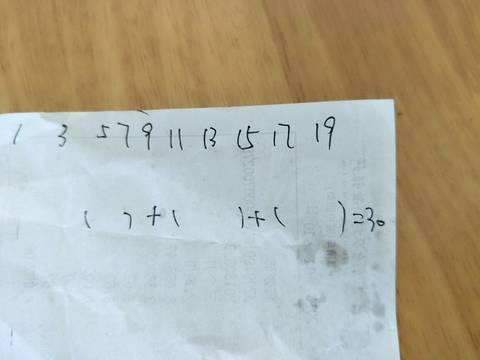 1 3 5 7 9 11 13 15 17 19
( )+( )+( )=30